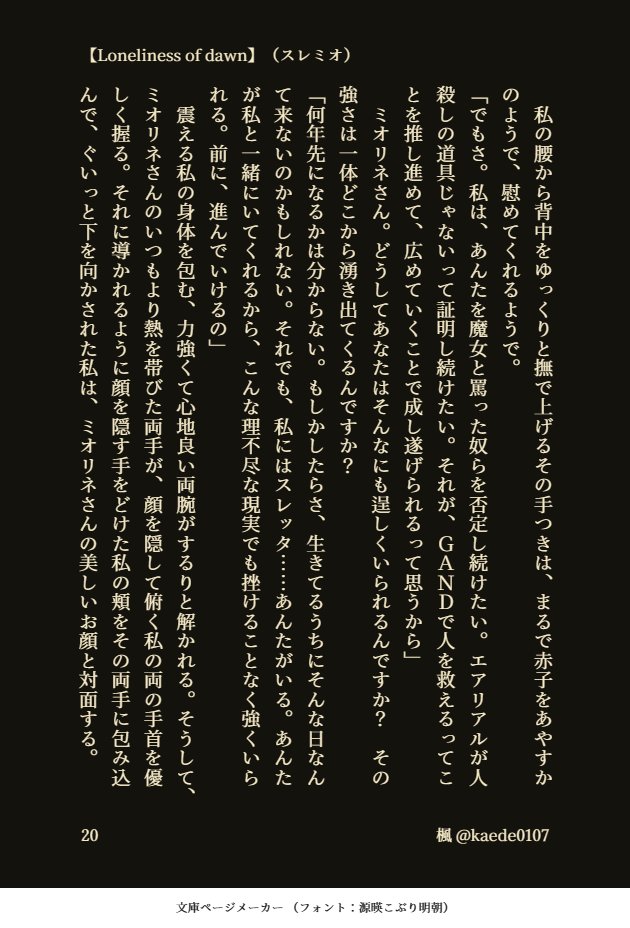 【Loneliness of dawn】（スレミオ）
　私の腰から背中をゆっくりと撫で上げるその手つきは、まるで赤子をあやすか
のようで、慰めてくれるようで。
「でもさ。私は、あんたを魔女と罵った奴らを否定し続けたい。エアリアルが人
殺しの道具じゃないって証明し続けたい。それが、ＧＡＮＤで人を救えるってこ
とを推し進めて、広めていくことで成し遂げられるって思うから」
　ミオリネさん。どうしてあなたはそんなにも逞しくいられるんですか？　その
強さは一体どこから湧き出てくるんですか？
「何年先になるかは分からない。もしかしたらさ、生きてるうちにそんな日なん
て来ないのかもしれない。それでも、私にはスレッタ……あんたがいる。あんた
が私と一緒にいてくれるから、こんな理不尽な現実でも挫けることなく強くいら
れる。前に、進んでいけるの」
　震える私の身体を包む、力強くて心地良い両腕がするりと解かれる。そうして、
ミオリネさんのいつもより熱を帯びた両手が、顔を隠して俯く私の両の手首を優
しく握る。それに導かれるように顔を隠す手をどけた私の頬をその両手に包み込
んで、ぐいっと下を向かされた私は、ミオリネさんの美しいお顔と対面する。
20
楓 @kaede0107
文庫ページメーカー （フォント：源暎こぶり明朝）